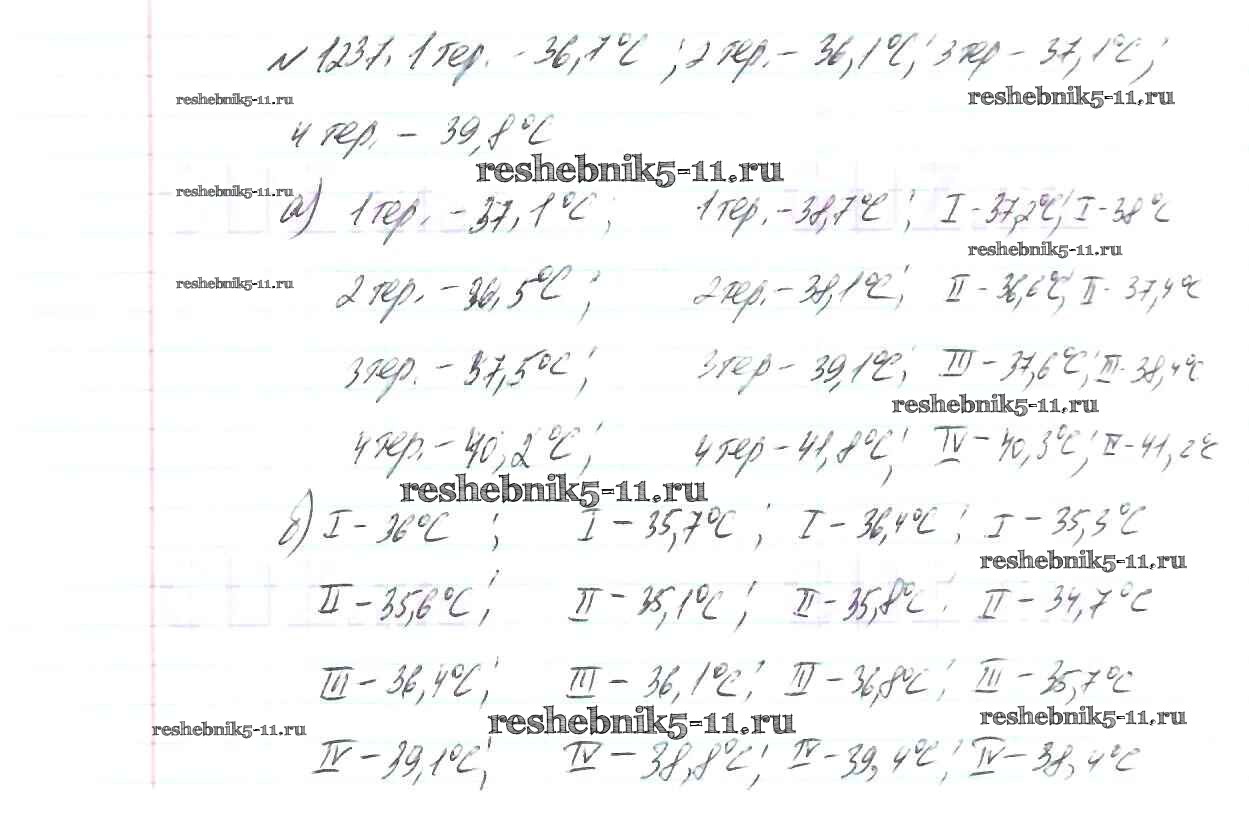 № 1237. 1 тер. - 36,7°C ; 2 тер. - 36,1°C ; 3 тер - 37,1°C ;
reshebnik5-11.ru reshebnik5-11.ru
4 тер. - 39,8°C
reshebnik5-11.ru
reshebnik5-11.ru
а) 1 тер. - 37,1°C ; 1 тер. - 38,7°C ; I - 37,2°C ; I - 38°C
reshebnik5-11.ru
reshebnik5-11.ru
2 тер. - 36,5°C ; 2 тер. - 38,1°C ; II - 36,6°C ; II - 37,4°C
3 тер. - 37,5°C ; 3 тер - 39,1°C ; III - 37,6°C ; III - 38,4°C
reshebnik5-11.ru
4 тер. - 40,2°C ; 4 тер - 41,8°C ; IV - 40,3°C ; IV - 41,2°C
reshebnik5-11.ru
б) I - 36°C ; I - 35,7°C ; I - 36,4°C ; I - 35,3°C
reshebnik5-11.ru
II - 35,6°C ; II - 35,1°C ; II - 35,8°C . II - 34,7°C
III - 36,4°C ; III - 36,1°C ; III - 36,8°C ; III - 35,7°C
reshebnik5-11.ru reshebnik5-11.ru reshebnik5-11.ru
IV - 39,1°C ; IV - 38,8°C ; IV - 39,4°C ; IV - 38,4°C